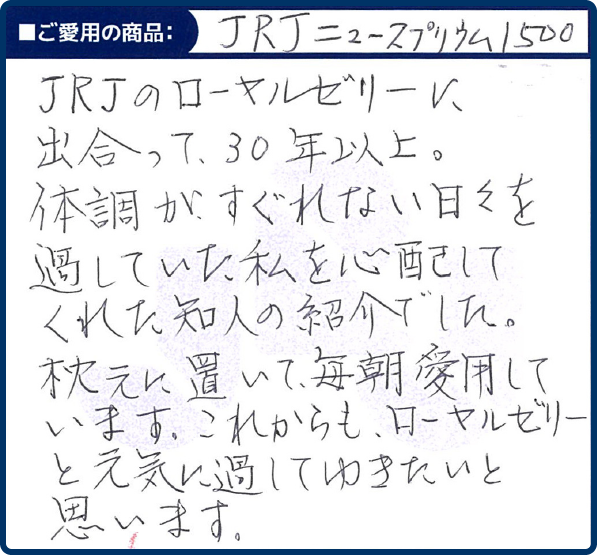 ■ご愛用の商品: JRJニュースプリウム1500
JRJのローヤルゼリーに、
出合って、30年以上。
体調が、すぐれない日々を
過していた私を心配して
くれた知人の紹介でした。
枕元に置いて、毎朝愛用して
います。これからも、ローヤルゼリー
と元気に過してゆきたいと
思います。